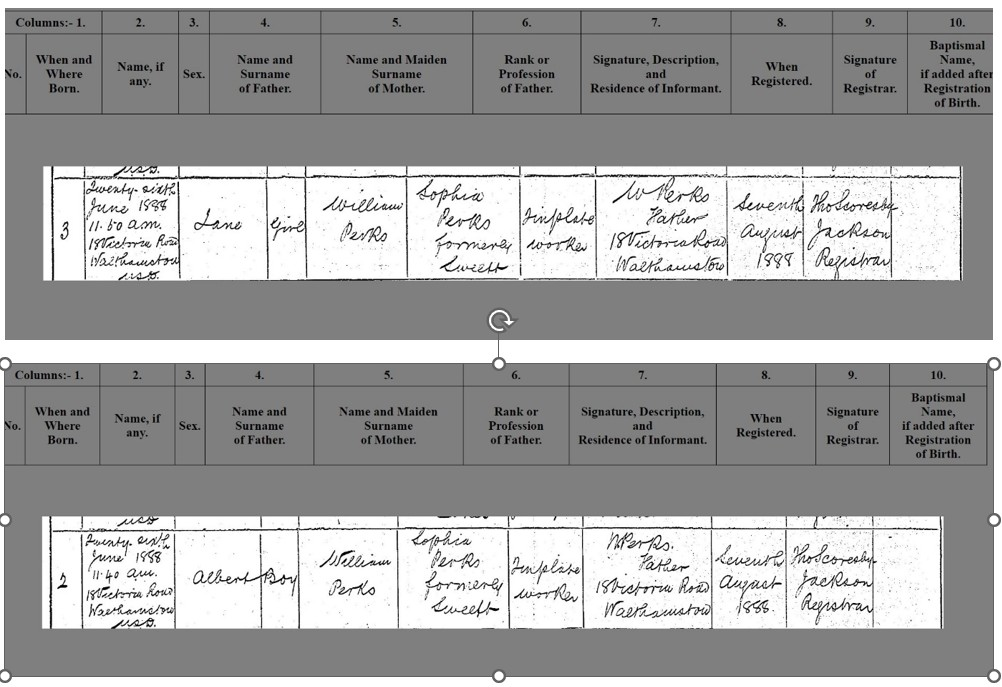 Columns:- 1. 2. 3. 4. 5. 6. 7. 8. 9. 10.
No. When and Where Born. Name, if any. Sex. Name and Surname of Father. Name and Maiden Surname of Mother. Rank or Profession of Father. Signature, Description, and Residence of Informant. When Registered. Signature of Registrar. Baptismal Name, if added after Registration of Birth.
U.S.D.
3
Twenty-sixth
June 1888
11.50 a.m.
18 Victoria Road
Walthamstow
U.S.D.
Jane
Girl
William
Perks
Sophia
Perks
formerly
Sweett
Tinplate
worker
W Perks
Father
18 Victoria Road
Walthamstow
Seventh
August
1888
Tho Scoresby
Jackson
Registrar
Columns:- 1. 2. 3. 4. 5. 6. 7. 8. 9. 10.
No. When and Where Born. Name, if any. Sex. Name and Surname of Father. Name and Maiden Surname of Mother. Rank or Profession of Father. Signature, Description, and Residence of Informant. When Registered. Signature of Registrar. Baptismal Name, if added after Registration of Birth.
USD
2
Twenty-sixth
June 1888
11.40 a.m.
18 Victoria Road
Walthamstow
U.S.D.
Albert
Boy
William
Perks
Sophia
Perks
formerly
Sweett
Tinplate
worker
W Perks.
Father
18 Victoria Road
Walthamstow
Seventh
August
1888.
Tho Scoresby
Jackson
Registrar